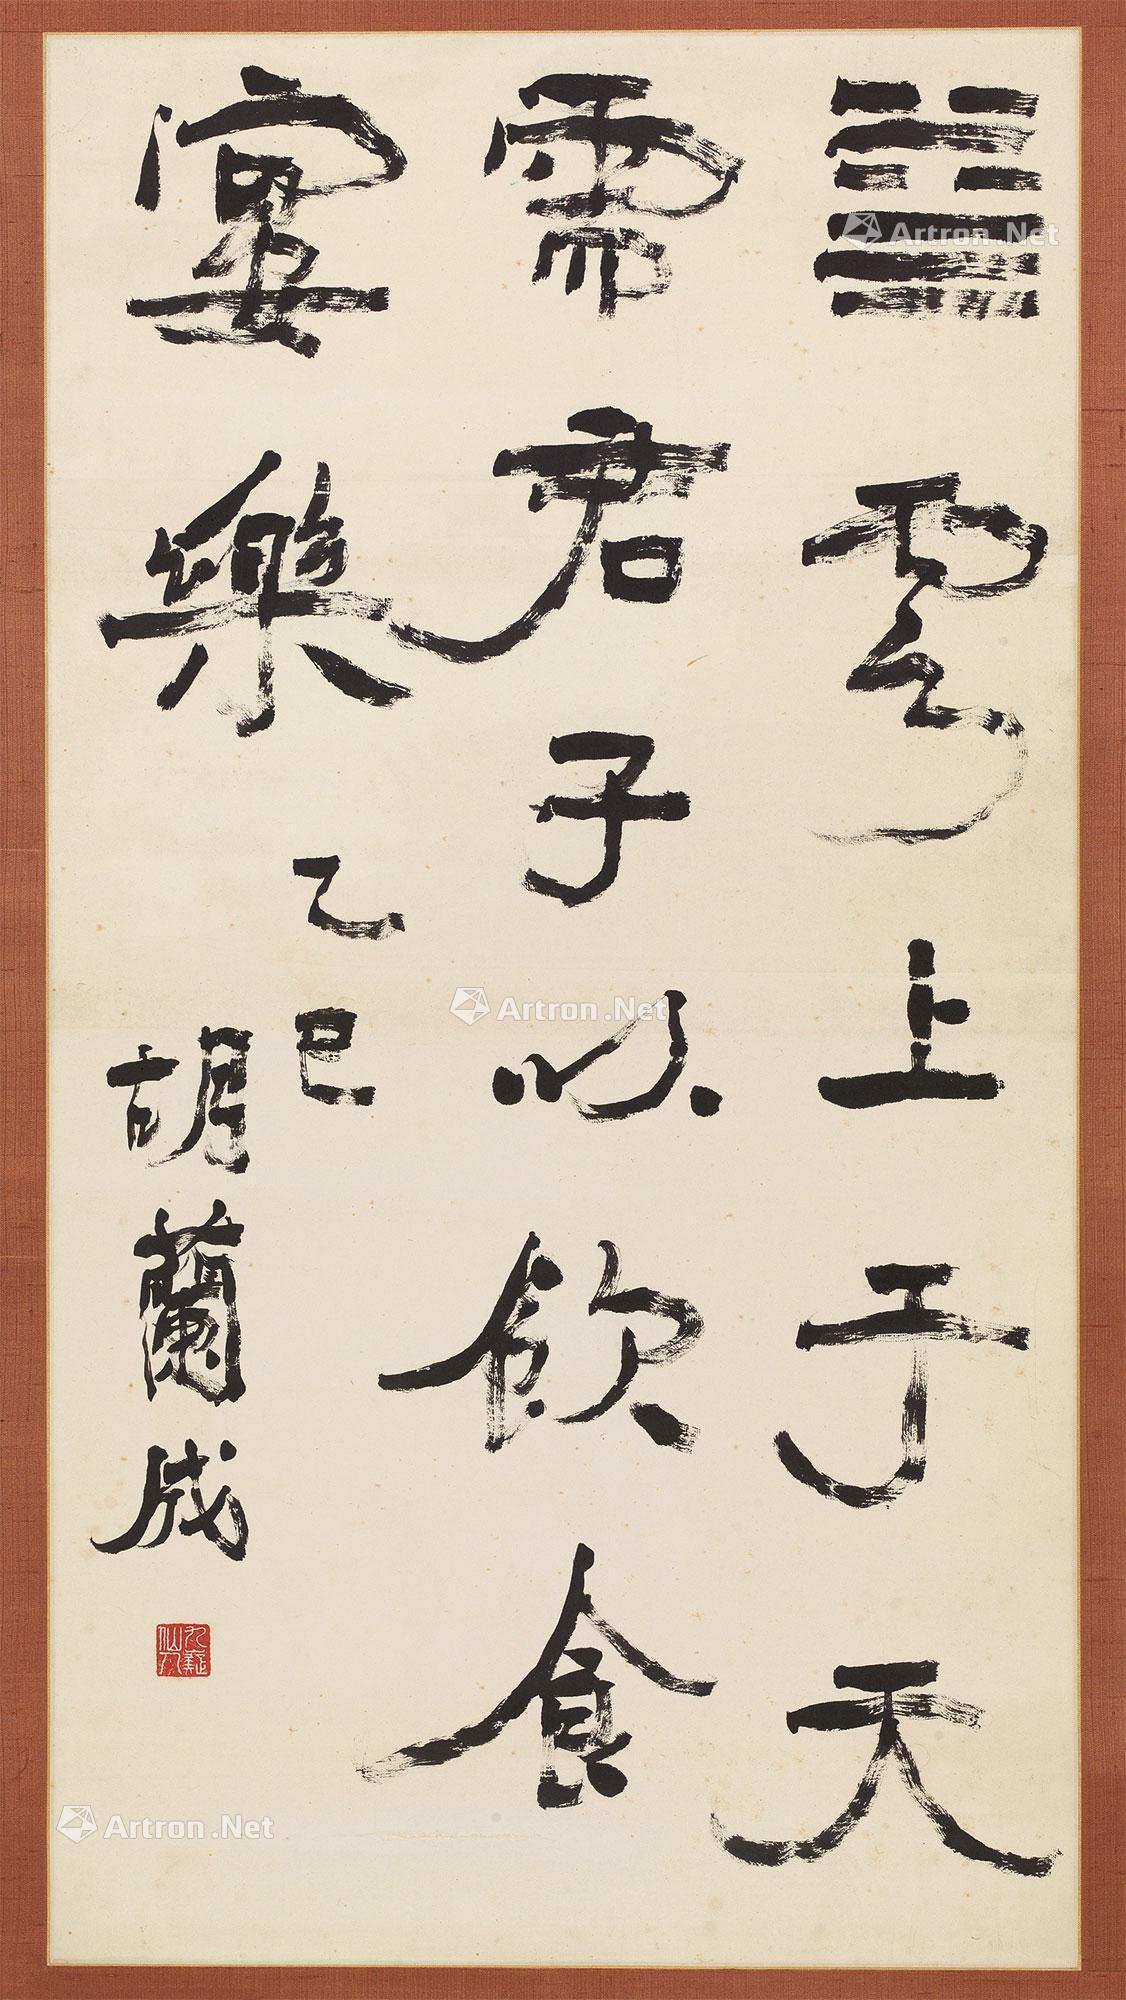 ䷄雲上于天
需君子以飲食
宴樂
乙巳
胡蘭成
Artron.Net
Artron.Net
Artron.Net